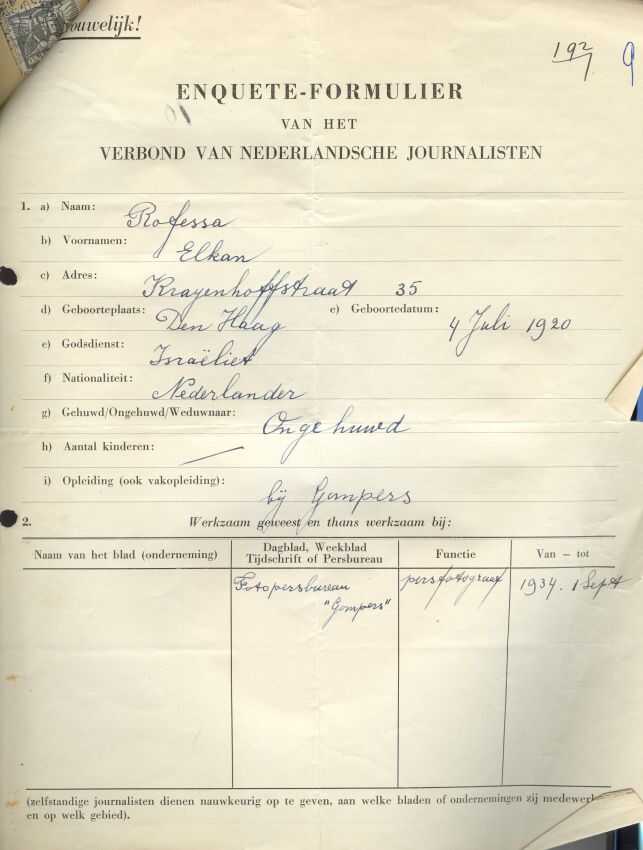 ouwelijk!
192
/7
9
ENQUETE-FORMULIER
VAN HET
VERBOND VAN NEDERLANDSCHE JOURNALISTEN
1. a) Naam: Rofessa
b) Voornamen: Elkan
c) Adres: Krayenhoffstraat 35
d) Geboorteplaats: Den Haag e) Geboortedatum: 4 Juli 1920
e) Godsdienst: Israëliet
f) Nationaliteit: Nederlander
g) Gehuwd/Ongehuwd/Weduwnaar: Ongehuwd
h) Aantal kinderen: —
i) Opleiding (ook vakopleiding): bij Gompers
2. Werkzaam geweest en thans werkzaam bij:
Naam van het blad (onderneming) Dagblad, Weekblad Tijdschrift of Persbureau Functie Van – tot
Fotopersbureau "Gompers" persfotograaf 1934. 1 Sept
(zelfstandige journalisten dienen nauwkeurig op te geven, aan welke bladen of ondernemingen zij medewerk
en op welk gebied).